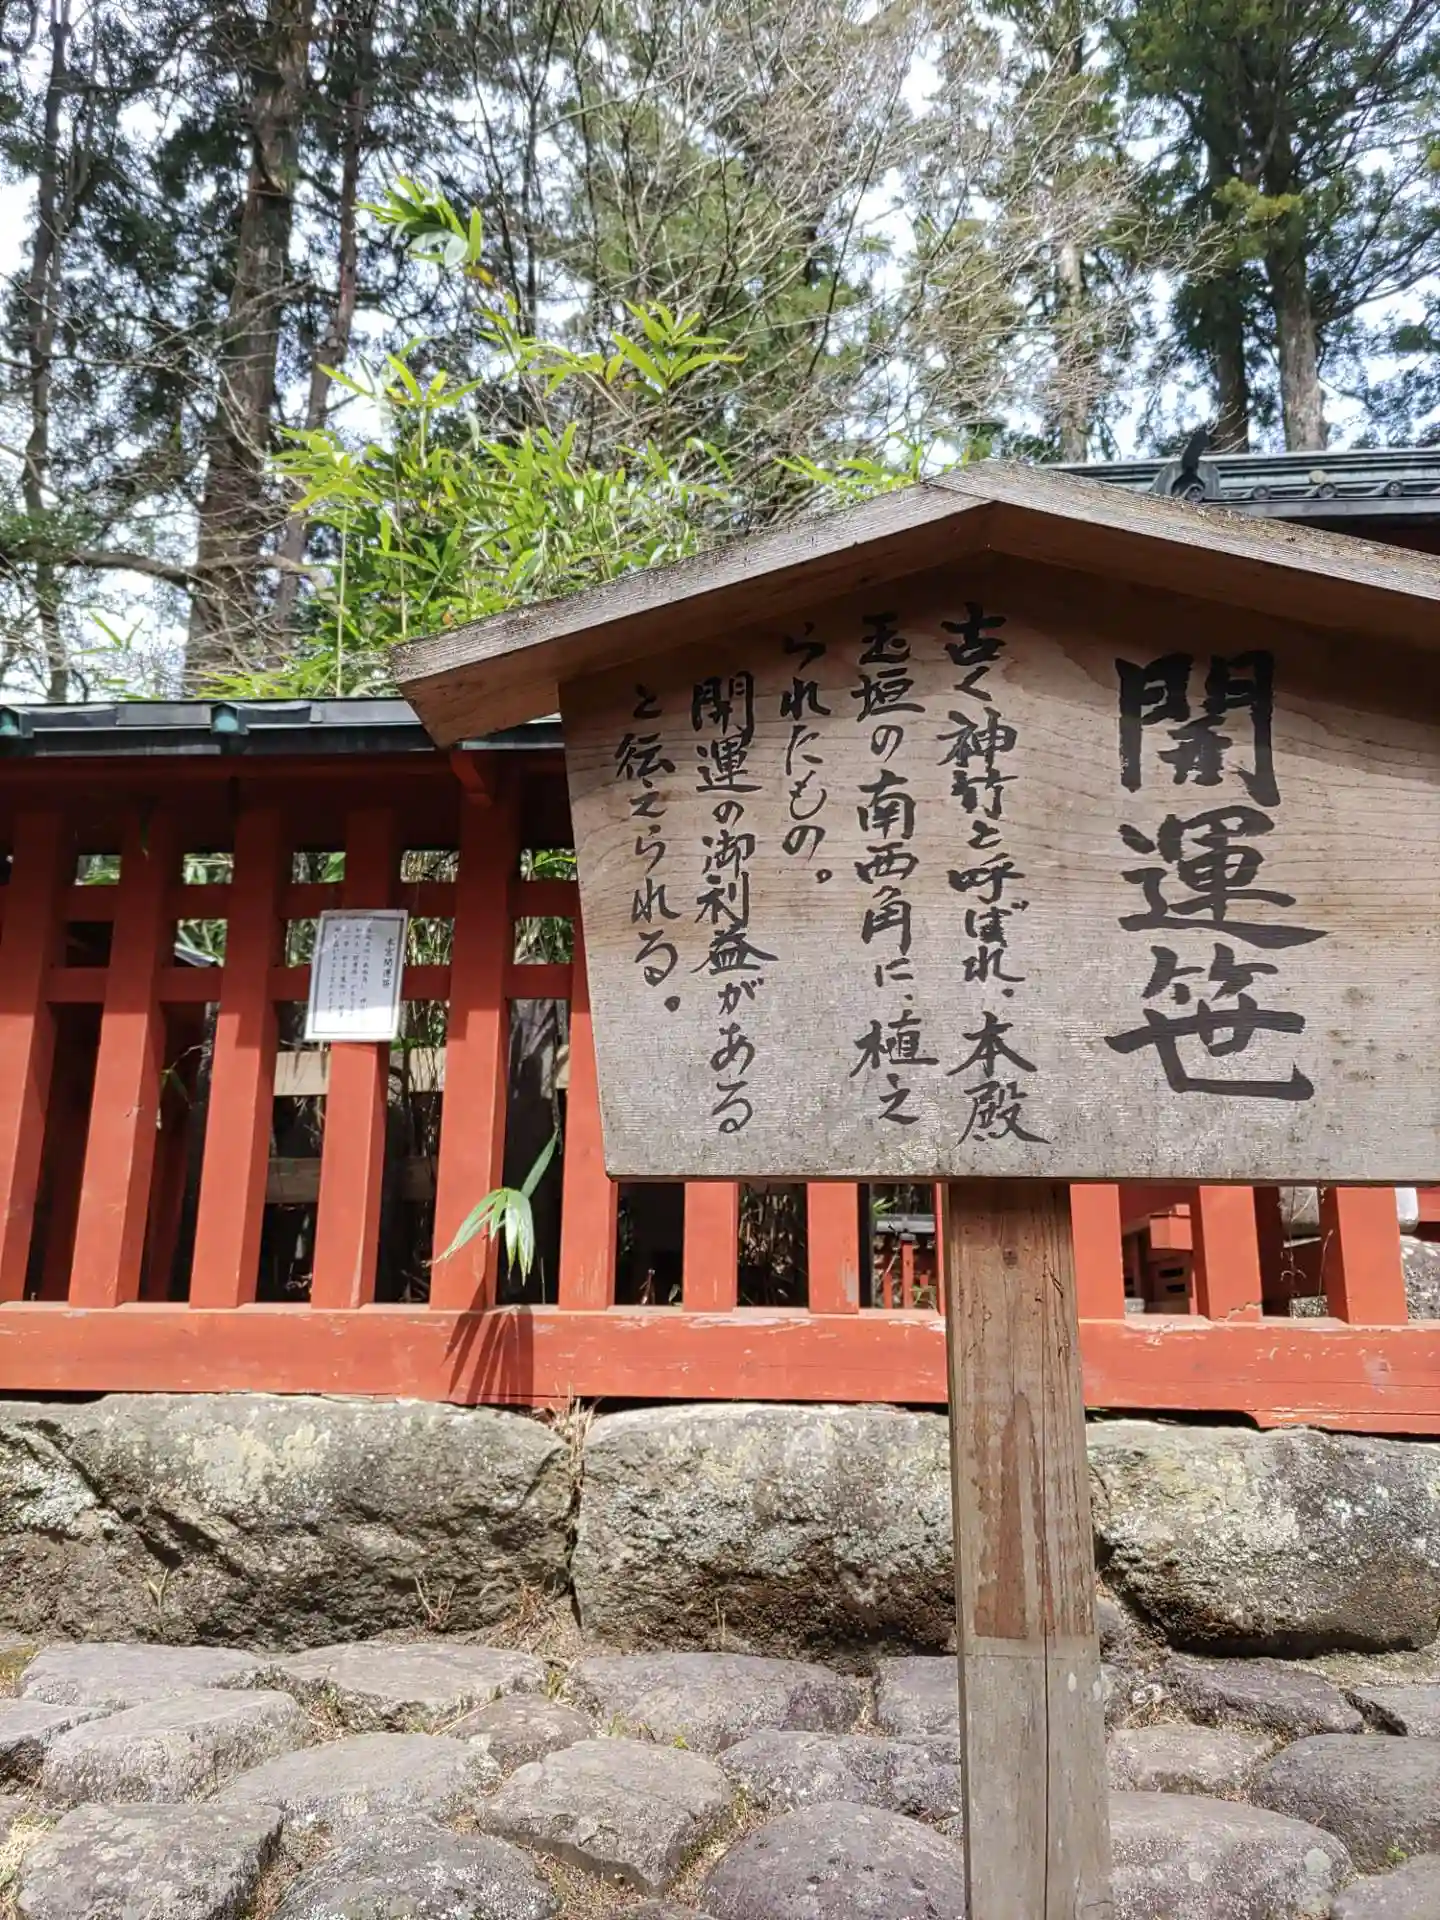 開運笹
古く神竹と呼ばれ、本殿
玉垣の南西角に、植え
られたもの。
開運の御利益がある
と伝えられる。
本宮開運笹